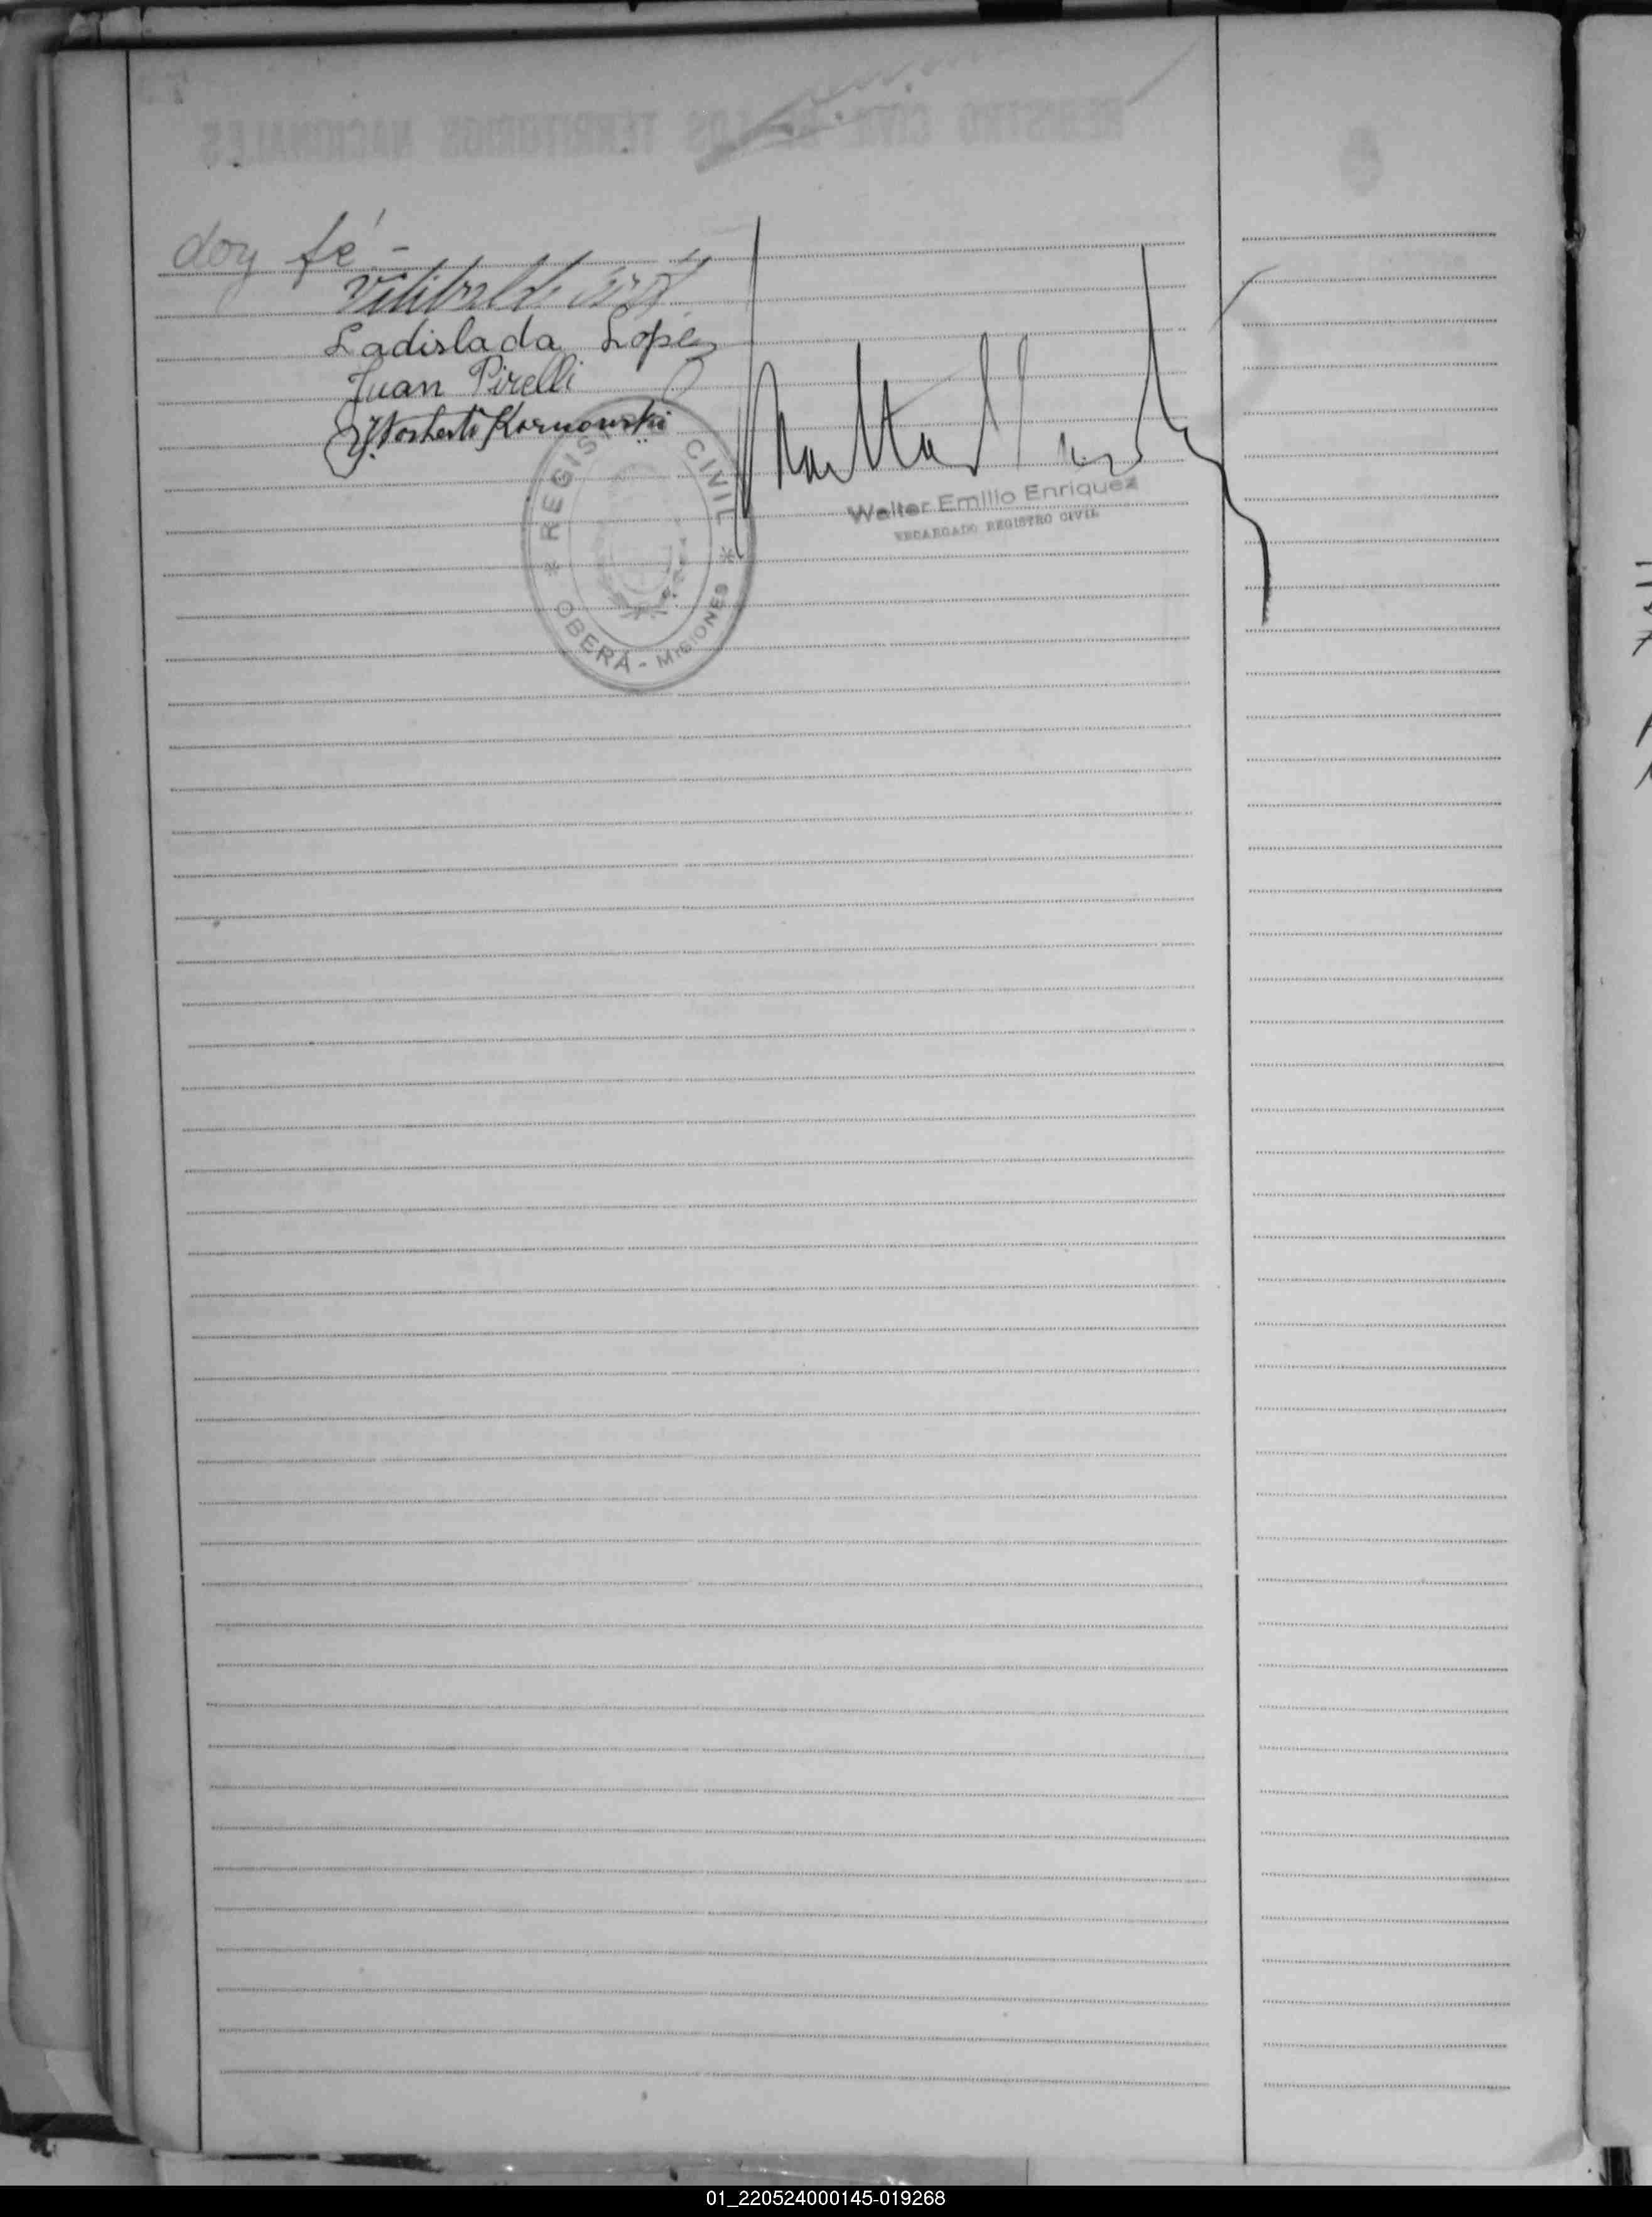 doy fé -
Ladislada Lopez
Juan Pirelli
Norberto Kornowski
REGISTRO CIVIL
OBERÁ - MISIONES
Walter Emilio Enriquez
ENCARGADO REGISTRO CIVIL
01_220524000145-019268